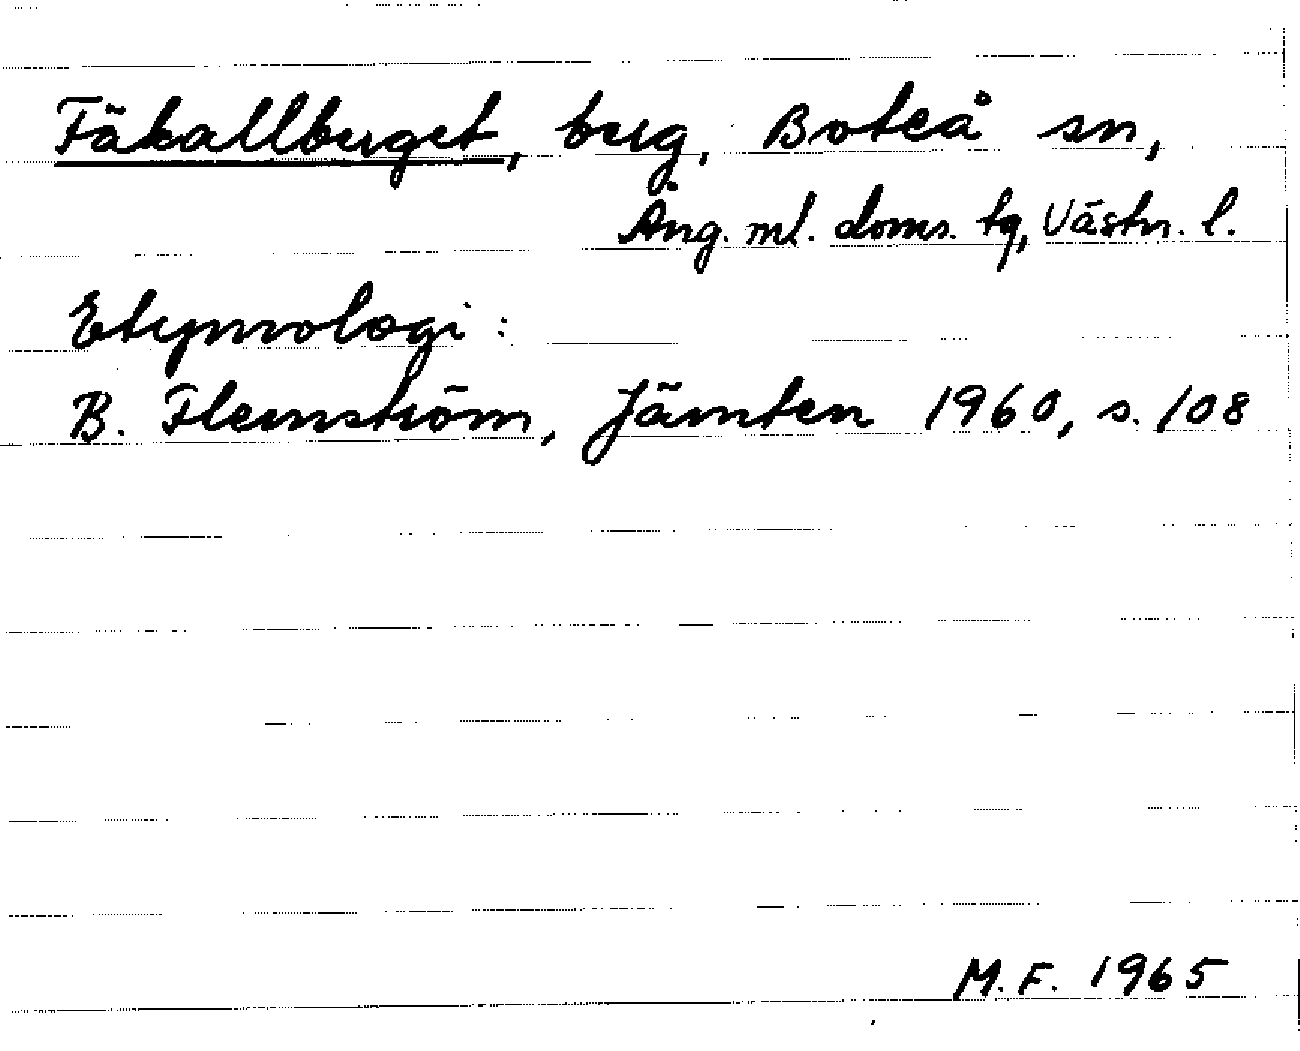 Fäkallberget, berg, Boteå sn,
Ång. ml. doms. tg, Västn. l.
Etymologi:
B. Flemström, Jämten 1960, s. 108
M.F. 1965